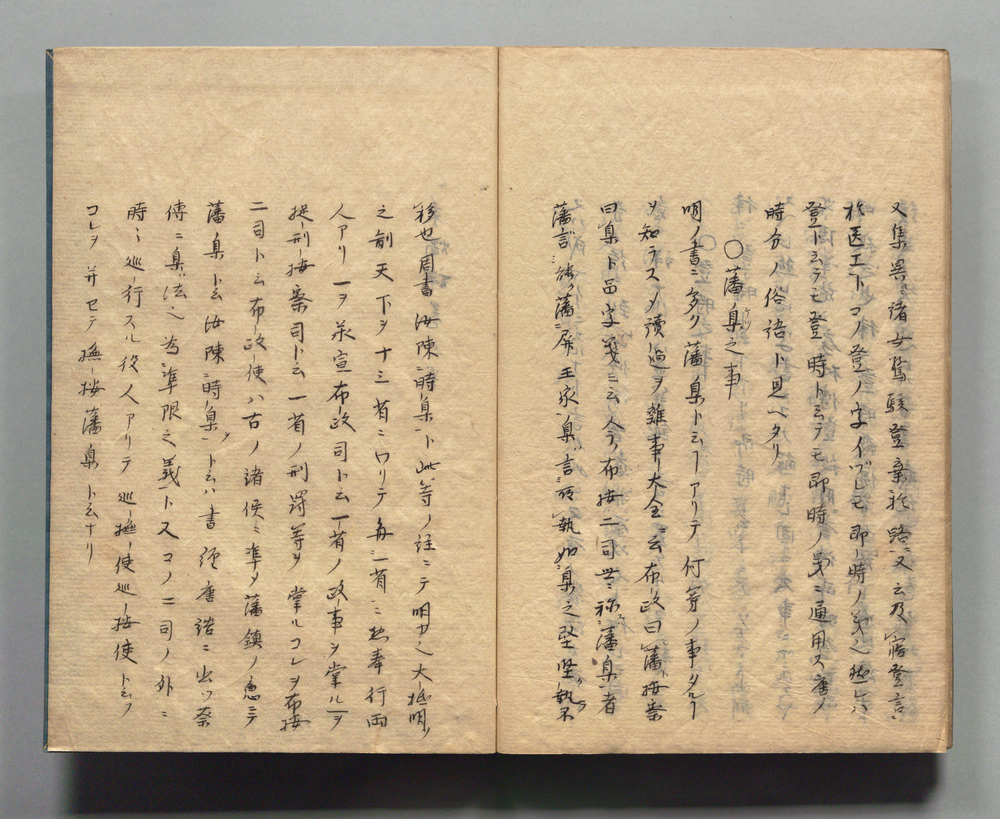 又集異ニ諸女驚駭登尋於路ニ又云及寤登言ハ
於医工トコノ登ノ字イヅレモ即時ノ義也然レハ
登ト云テモ登時ト云テモ即時ノ義ニ通用ス唐ノ
時分ノ俗語ト見ヘタリ
〇藩臬之事
明ノ書ニ多ク藩臬ト云フアリテ何等ノ事タルヿ
ヲ知ラス読過ヲ雜事大全ニ云布政曰藩按察
曰臬ト留字箋ニ云人今布按二司世ニ称ス藩臬者
藩言能ク藩屏王家臬言所執如臬之堅堅執不
移也周書汝陳時臬ト此等ノ注ニテ明也大抵明ノ
之制天下ヲ十三省ニワリテ毎一省ニ必奉行両
人アリ一ヲ承宣布政司ト云一省ノ政事ヲ掌ル一ヲ
提刑按察司ト云一省ノ刑罰等ヲ掌ルコレヲ布按
二司ト云布政使ハ古ノ諸侯ニ準メ藩鎮ノ意ニテ
藩臬ト云汝陳時臬トハ書経唐誥ニ出ツ蔡
傳ニ臬法也為準限之義ト又コノ二司ノ外ニ
時々巡行スル役人アリテ巡撫使巡按使ト云フ
コレヲ并セテ撫按藩臬ト云ナリ